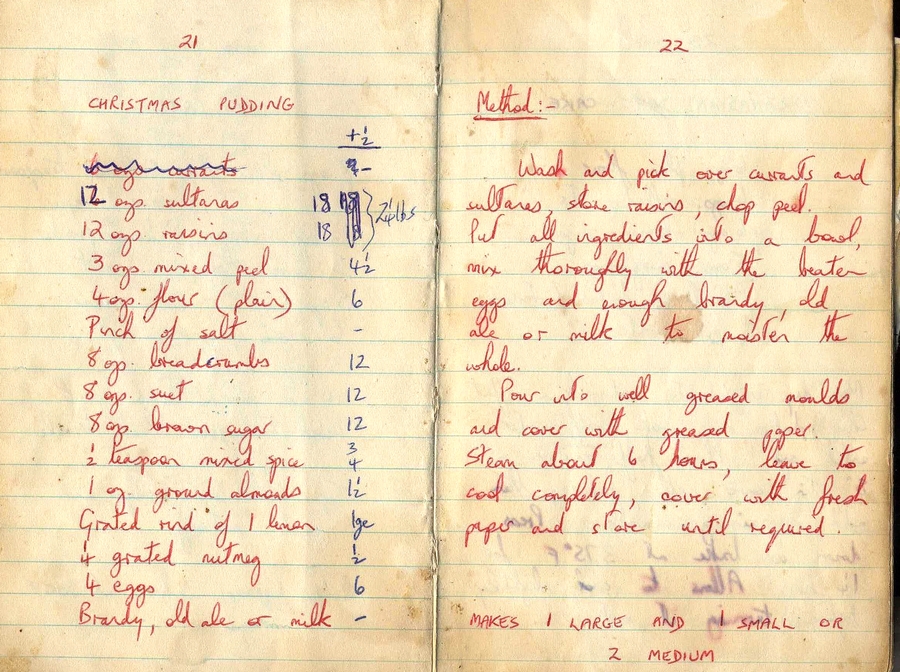 21
CHRISTMAS PUDDING
+½
6 ozs currants -
12 ozs. sultanas 18
12 ozs. raisins 18 } 2¼lbs
3 ozs. mixed peel 4½
4 ozs. flour (plain) 6
Pinch of salt -
8 ozs. breadcrumbs 12
8 ozs. suet 12
8 ozs. brown sugar 12
½ teaspoon mixed spice ¾
1 oz. ground almonds 1½
Grated rind of 1 lemon 1ge
¼ grated nutmeg ½
4 eggs 6
Brandy, old ale or milk -
22
Method:-
Wash and pick over currants and
sultanas, stone raisins, chop peel.
Put all ingredients into a bowl,
mix thoroughly with the beaten
eggs and enough brandy, old
ale or milk to moisten the
whole.
Pour into well greased moulds
and cover with greased paper.
Steam about 6 hours, leave to
cool completely, cover with fresh
paper and store until required.
MAKES 1 LARGE AND 1 SMALL OR
2 MEDIUM